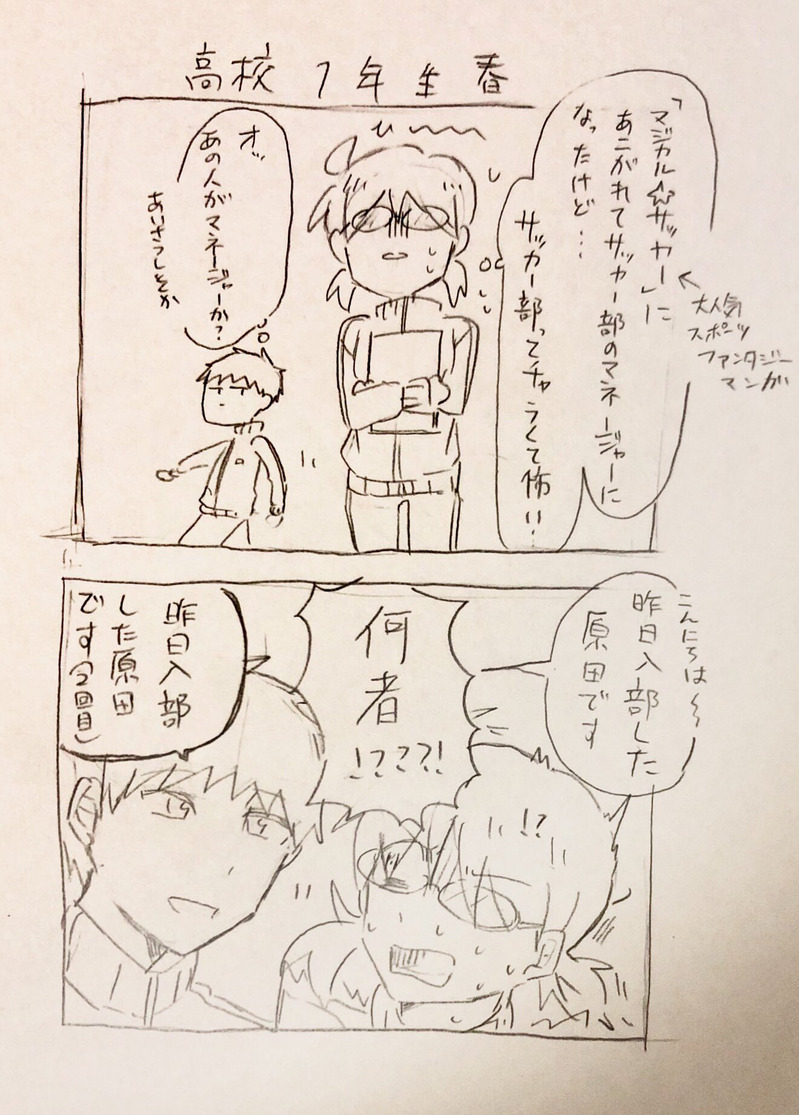 高校1年生春
「マジカル☆サッカー」に
あこがれてサッカー部のマネージャーに
なったけど…
サッカー部ってチャラくて怖い…
←大人気
スポーツ
ファンタジー
マンガ
ひ〜〜
オッ
あの人がマネージャーか?
あいさつしとこか
こんにちは〜
昨日入部した
原田です
!?
何者
!????!
昨日入部
した原田
です(2回目)